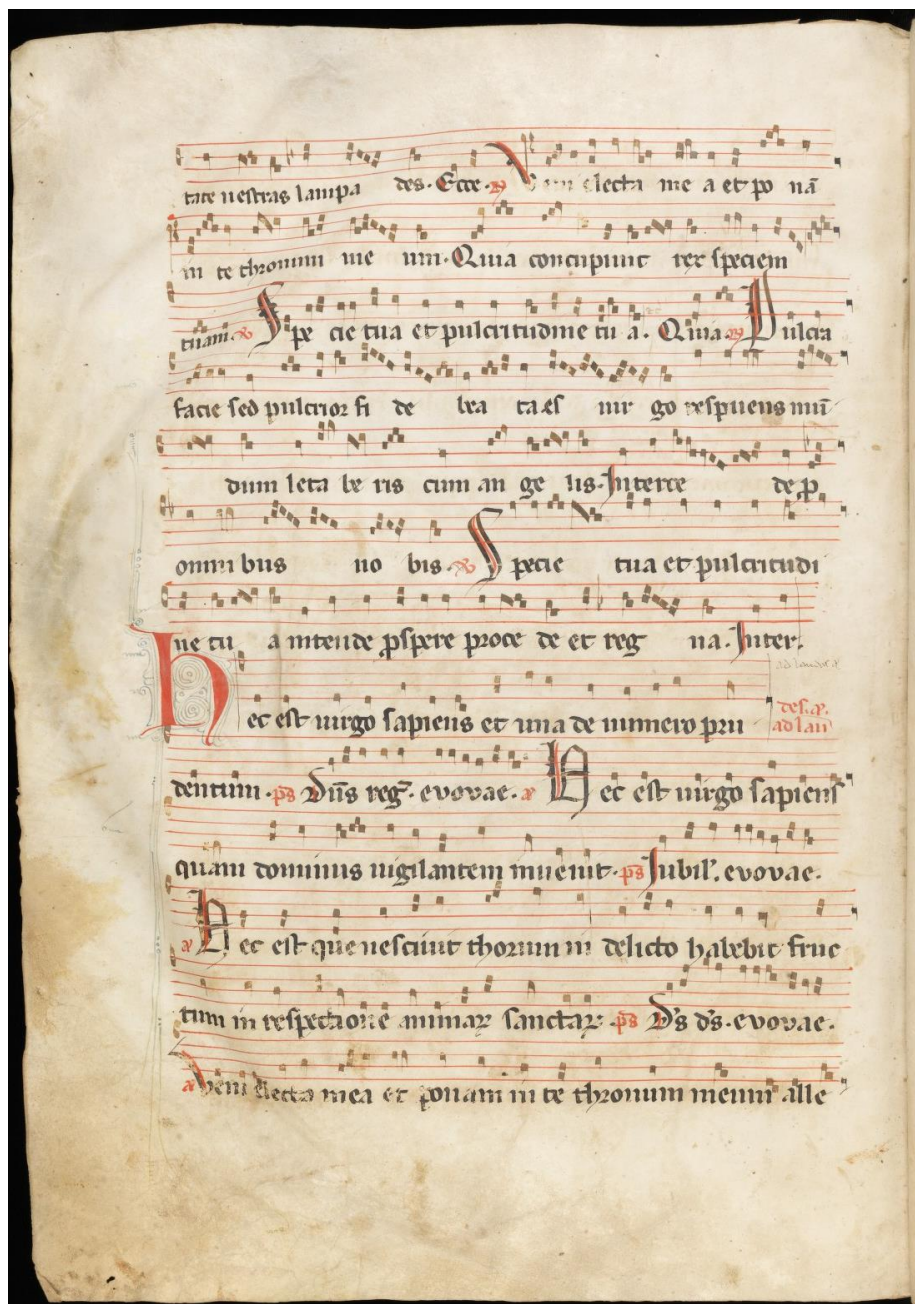 tate uestras lampa des. Ecce. ℟ Veni electa me a et po nā
in te thronum me um. Quia concupiuit rex speciem
tuam. ℣ Spe cie tua et pulcritudine tu a. Quia. ℟ Pulcra
facie sed pulcrior fi de bea ta es uir go respuens mū
dum leta be ris cum an ge lis. Interce de ꝓ
omni bus no bis. ℣ Specie tua et pulcritudi
ne tu a intende ꝓspere proce de et reg na. Inter.
Hec est uirgo sapiens et una de numero pru
ad lau
dentum. ps Dn̄s reg. evovae. a Hec est uirgo sapiens
quam dominus uigilantem inuenit. ps Iubil. evovae.
a Hec est que nesciuit thorum in delicto habebit fruc
tum in respectione animaꝝ sanctaꝝ. ps Ds ds. evovae.
a Veni electa mea et ponam in te thronum meum alle